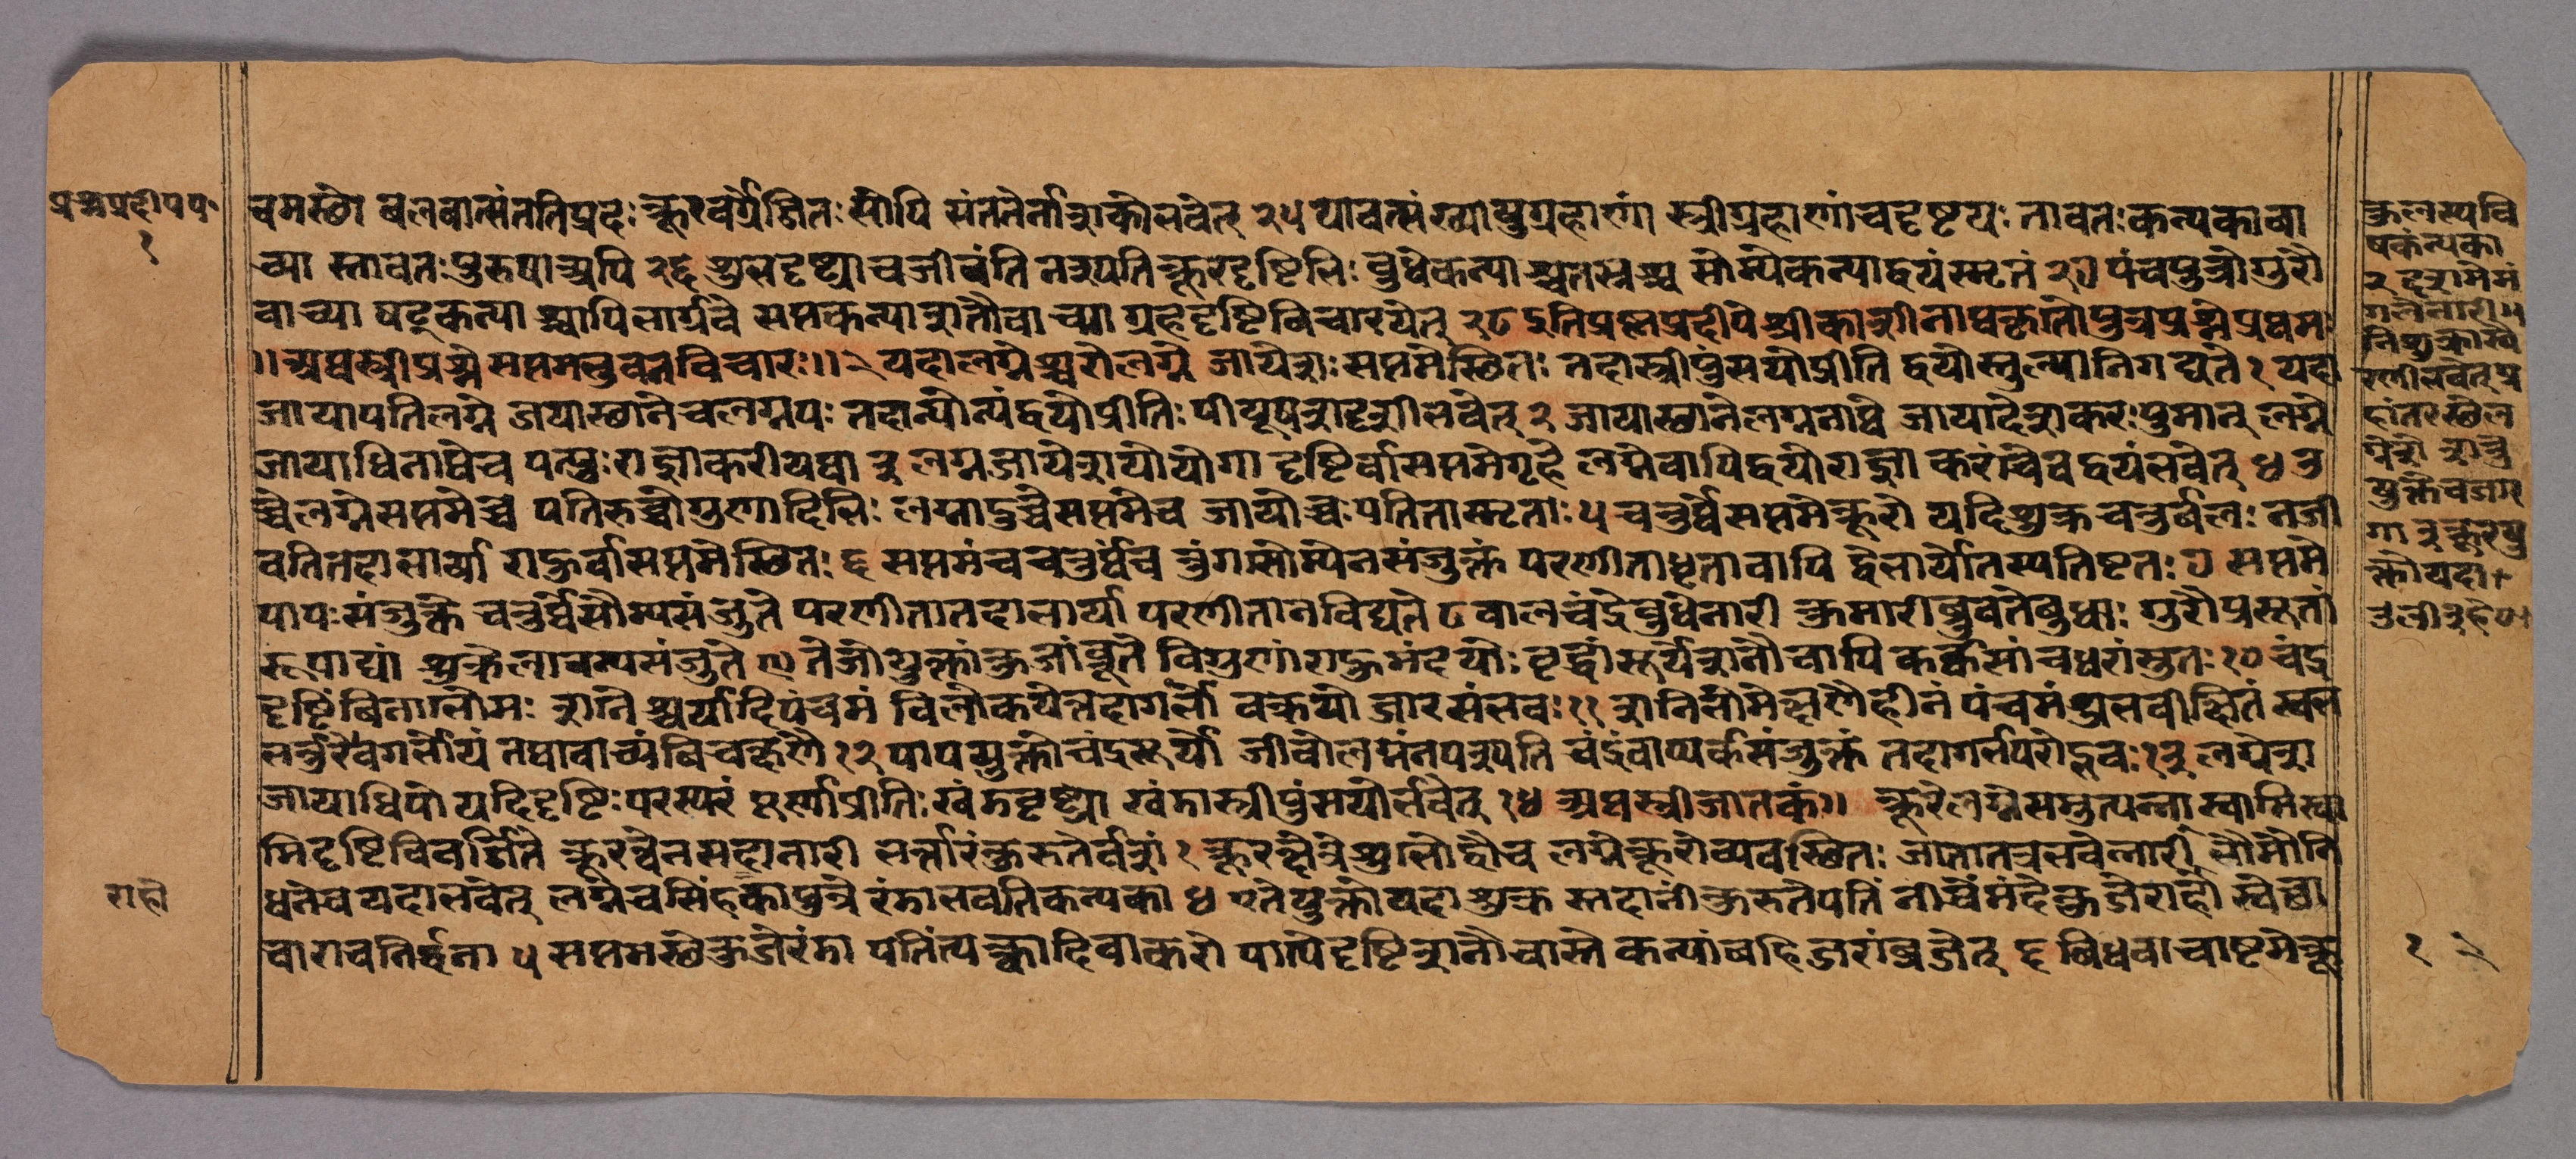 प्रश्नप्रदीपप॰
१
चमस्थो बलवान्संततिप्रदः क्रूरवर्गेर्जितः सोपि संततेर्नाशको भवेत् २५ यावत्संख्या पुग्रहाणां स्त्रीग्रहाणां च दृष्टयः तावतः कन्यका वा
च्या स्तावतः पुरुषा अपि २६ शुभदृष्ट्या च जीवंति नश्यति क्रूरदृष्टिभिः बुधे कन्या श्चतस्रश्च सौम्ये कन्याद्वयं स्मृतं २७ पंच पुत्रो गुरौ
वाच्या षट्कन्या श्चापि भार्गवे सप्तकन्या शनौ वाच्या ग्रहदृष्टि विचारयेत् २८ इति प्रश्नप्रदीपे श्रीकाशीनाथकृतो पुत्रप्रश्ने प्रथमः
॥ अथ स्त्रीप्रश्ने सप्तमभुवनविचारः ॥ २ यदा लग्नेश्वरो लग्ने जायेशः सप्तमे स्थितः तदा स्त्रीपुंसयो प्रीति द्वयोस्तुल्या निगद्यते १ यदा
जायापतिलग्ने जयास्थाने च लग्नपः तदान्योन्यं द्वयो प्रीतिः पीयूषशदृशी भवेत् २ जायास्थाने लग्ननाथे जायादेशकरः पुमान् लग्ने
जायाधिनाथे च पत्युः राज्ञाकरी यथा ३ लग्नजायेशयो योगा दृष्टिर्वा सप्तमे गृहे लग्ने वापि द्वयोराज्ञा करां चैव द्वयं भवेत् ४ उ
च्चे लग्ने सप्तमे च्चे पतिरुच्चो गुणादिभिः लग्नादुच्चे सप्तमे च जायोच्चः पतिता स्मृताः ५ चतुर्थे सप्तमे क्रूरो यदि शुक्र चतुर्बलः न जी
वति तदा भार्या राहुर्वा सप्तमे स्थितः ६ सप्तमं च चतुर्थं च त्रुंगसौम्येन संजुक्तं परणीता धृता वापि द्वे भार्ये तस्य तिष्टतः ७ सप्तमे
पापः संजुक्ते चतुर्थे सौम्यसंजुते परणीता तदा भार्या परणीता न विद्यते ८ बालचंद्रे बुधे नारी कुमारी ब्रुवते बुधाः गुरौ प्रसूतां
रूपाढ्यां शुक्रे लावन्यसंजुते ९ तेजोयुक्तां कुजां ब्रूते विगुणां राहुमंदयोः वृद्धां सूर्य शनौ चापि कर्कसां च धरांस्तुतः १० चंद्र
दृष्टिं विना भौमः शनिश्चर्यादि पंचमं विलोकयेत्तदा गर्भो वक्रयो जारसंभवः ११ शनिभौमे क्षणे हीनं पंचमं शुभवीक्षितं स्वभ
र्भर्त्तुरेव गर्भोयं तथा वाच्यं विचक्षणे १२ पापयुक्तो चंद्रसूर्यो जीवो लग्नं न पश्यति चंद्रं वाप्यर्कसंजुक्तं तदा गर्भपरोद्भवः १३ लग्नेश
जायाधिपो यदि दृष्टिः परस्परं पूर्णा प्रीतिः खंडदृष्ट्या खंडा स्त्रीपुंसयोर्भवेत् १४ अथ स्त्रीजातकं ॥ क्रूरे लग्ने समुत्पन्ना स्वामिस्वा
मिदृष्टिविवर्जिते क्रूरत्वेन सदा नारी भर्त्तारं कुरुते वशं १ क्रूरक्षेत्रे शुभो द्वौ च लग्ने क्रूरो व्यवस्थितः जाता तत्र भवेन्नारी भौमो नि
धने च यदा भवेत् लग्ने च सिंहकापुत्रे रंडा भवति कन्यका ४ एते युक्तो यदा शुक्र स्तदानीं कुरुते पतिं नीचं मंदे कुजे राहौ स्वेछा
चारा च निर्द्धना ५ सप्तमस्थे कुजे रंडा पतिं त्यक्त्वा दिवाकरो पाप्ये दृष्टि शनौ चास्ते कन्यां बहि जरां ब्रजेत् ६ विधवा चाष्टमे क्रू
राहौ
कुलस्य वि
षकंन्यका
२ द्वदशमे मं
गले नारी ॥
तिशुक्रास्यै
रणी भवेत् ग्र
हांतर स्थे ल
ग्नेशे शत्रु
युक्ते च जार
गा ३ क्रूरयु
क्तो यदा
१ २